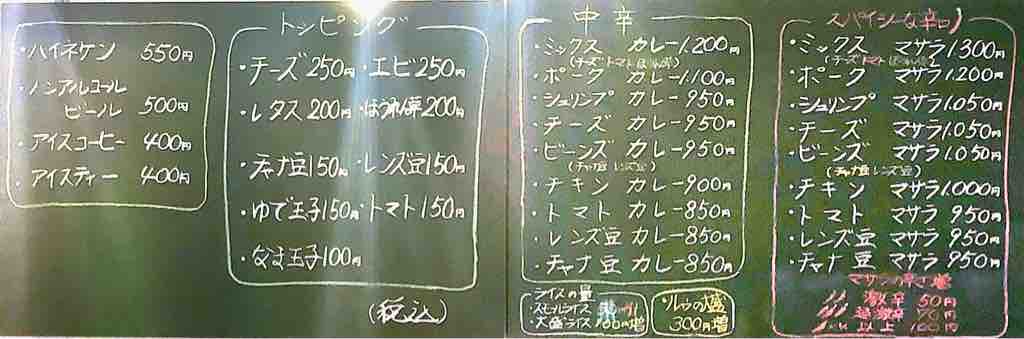 ・ハイネケン 550円
・ノンアルコール
ビール 500円
・アイスコーヒー 400円
・アイスティー 400円
トッピング
・チーズ250円・エビ250円
・レタス200円・ほうれん草200円
・チャナ豆150円・レンズ豆150円
・ゆで玉子150円・トマト150円
・なま玉子100円
(税込)
中辛
・ミックス カレー1.200円
(チーズ トマト ほうれん草)
・ポーク カレー1.100円
・シュリンプ カレー950円
・チーズ カレー950円
・ビーンズ カレー950円
(チャナ豆 レンズ豆)
・チキン カレー900円
・トマト カレー850円
・レンズ豆 カレー850円
・チャナ豆 カレー850円
ライスの量
・スモールライス
・大盛ライス 100円増
・ルゥの大盛
300円増
スパイシーな辛口
・ミックス マサラ1.300円
(チーズ トマト ほうれん草)
・ポーク マサラ1.200円
・シュリンプ マサラ1.050円
・チーズ マサラ1.050円
・ビーンズ マサラ1.050円
(チャナ豆 レンズ豆)
・チキン マサラ1.000円
・トマト マサラ 950円
・レンズ豆 マサラ 950円
・チャナ豆 マサラ 950円
マサラの辛さ増
激辛 50円
超激辛 70円
以上 100円